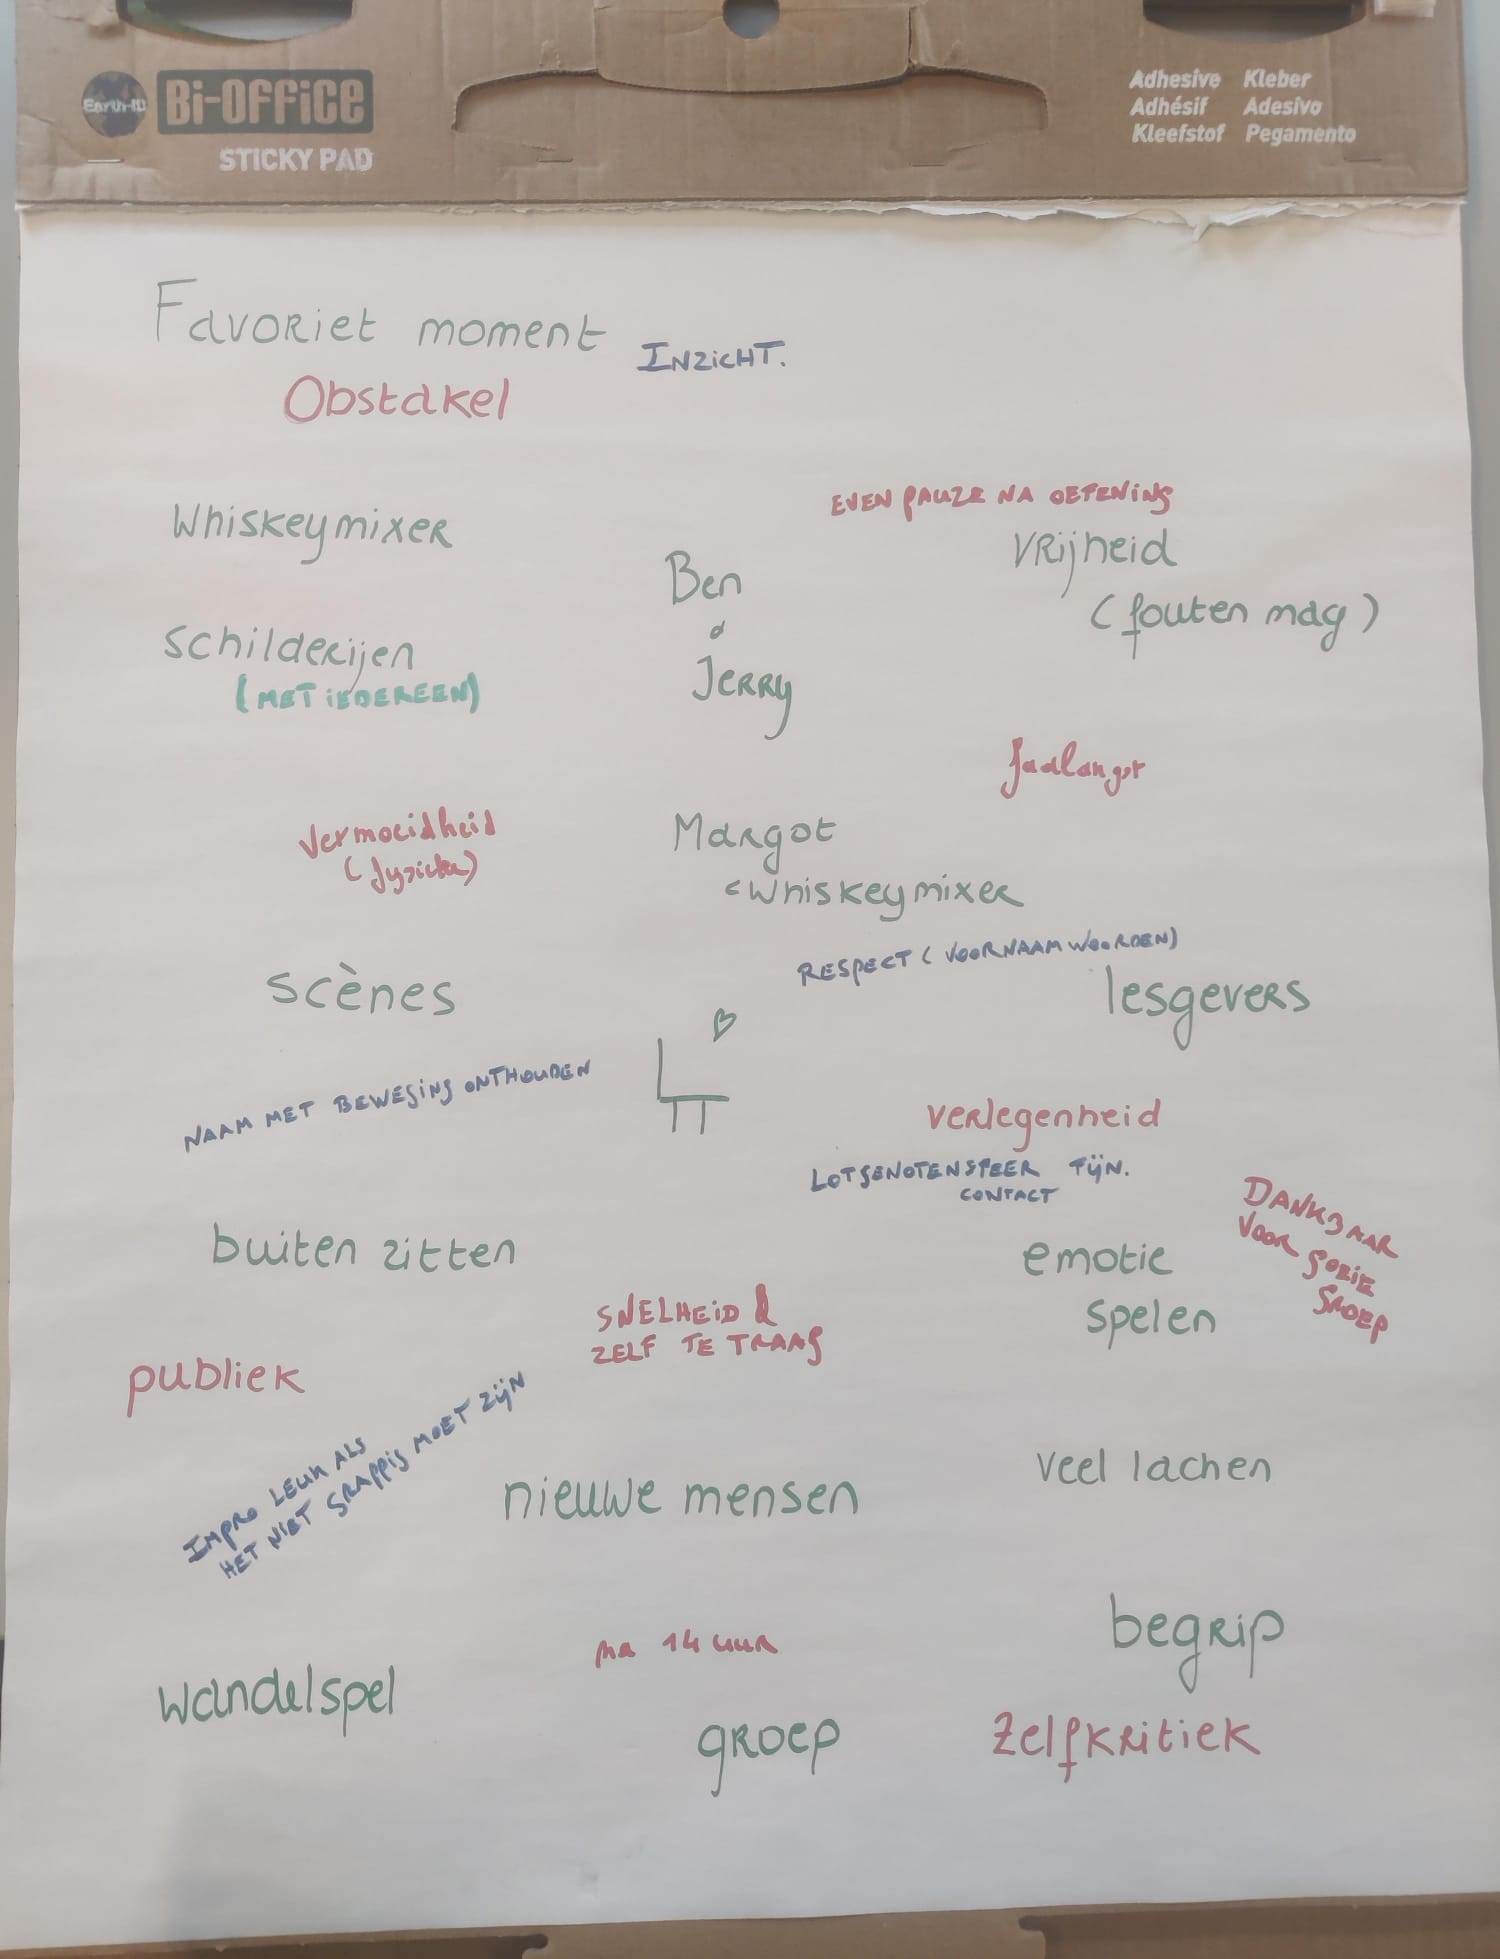 Earth-ID
Bi-OFFiCE
STICKY PAD
Adhesive Kleber
Adhésif Adesivo
Kleefstof Pegamento
Favoriet moment
INZICHT.
Obstakel
EVEN PAUZE NA OEFENING
Whiskeymixer
VRijheid
Ben
(fouten mag)
&
Schilderijen
JERRY
(MET iEDEREEN)
faalangst
Vermoeidheid
(fysieke)
Margot
<Whiskeymixer
RESPECT (VOORNAAMWOORDEN)
scènes
lesgevers
NAAM MET BEWEGING ONTHOUDEN
verlegenheid
LOTGENOTENSFEER FIJN.
CONTACT
DANKBAAR
VOOR GOEIE
GROEP
buiten zitten
emotie
spelen
SNELHEID &
ZELF TE TRAAG
publiek
IMPRO LEUK ALS
HET NIET GRAPPIG MOET ZIJN
veel lachen
nieuwe mensen
begrip
na 14 uur
wandelspel
groep
zelfkritiek